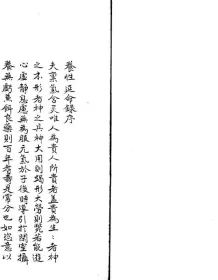 養性延命錄序
夫稟氣含靈唯人為貴人所貴者蓋貴為生〻者神
之本形者神之具神大用則竭形大勞則斃若能遊
心虛靜息慮無為服元氣於子後時導引於閑室攝
養無虧兼餌良藥則百年耆壽是常分也如恣意以